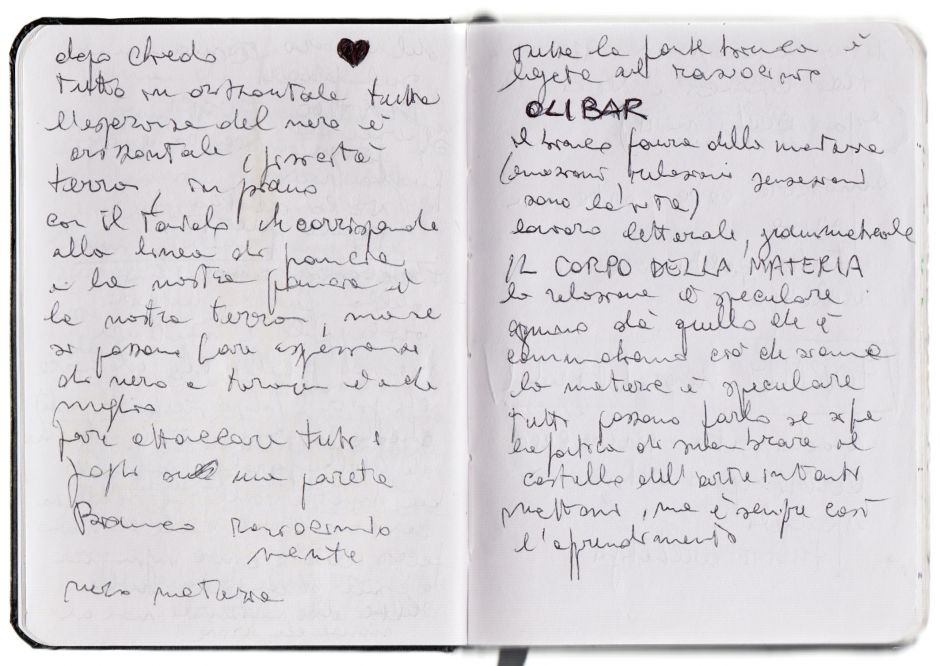 dopo chiedo
tutto in orizzontale tutta
l'esperienza del nero è
orizzontale,
terra, in piano
con il tavolo che corrisponde
alla linea di pancia
e la nostra pancia è
la nostra terra, ma se
si possono fare esperienze
di nero a terra
meglio
fare attaccare tutti i
fogli su una parete
Bianco raziocinio
mente
nero materia
tutta la parte bianca è
legata al raziocinio
OLIBAR
il bianco fuori dalla materia
(emozioni, relazioni sensazioni
sono la vita)
lavoro letterale, grammaticale
IL CORPO DELLA MATERIA
la relazione è speculare
ognuno dà quello che è
ciò che siamo
la materia è speculare
tutti possono farlo se
la fatica di smembrare il
castello dell'arte in tanti
mattoni, ma è sempre così
l'apprendimento